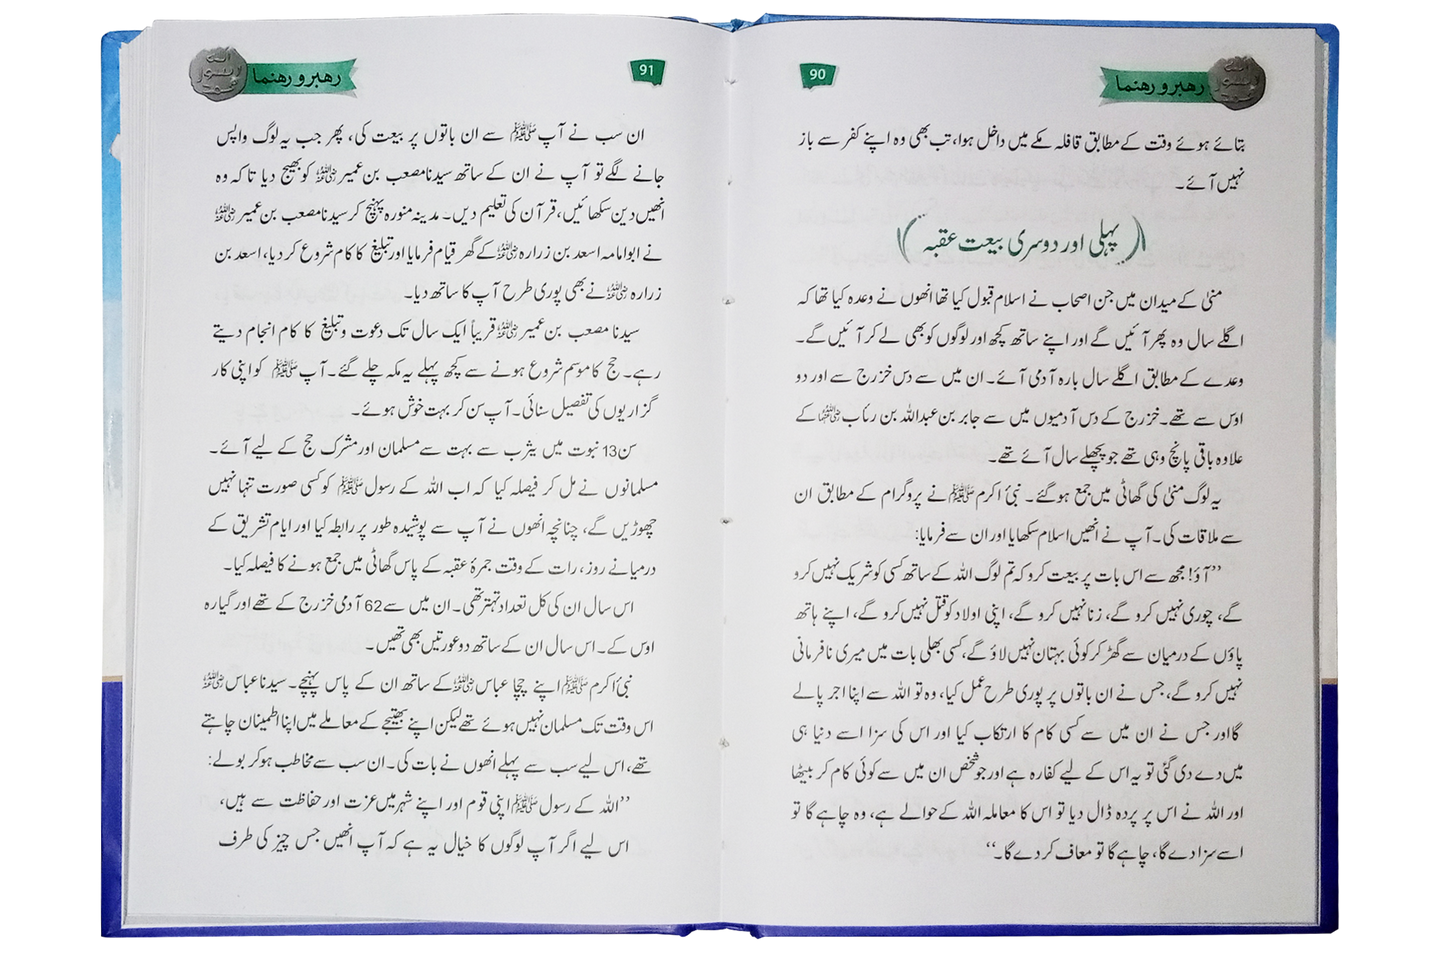 رہبر و رہنما
90
بتائے ہوئے وقت کے مطابق قافلہ مکے میں داخل ہوا، تب بھی وہ اپنے کفر سے باز
نہیں آئے۔
پہلی اور دوسری بیعت عقبہ
منیٰ کے میدان میں جن اصحاب نے اسلام قبول کیا تھا انھوں نے وعدہ کیا تھا کہ
اگلے سال وہ پھر آئیں گے اور اپنے ساتھ کچھ اور لوگوں کو بھی لے کر آئیں گے۔
وعدے کے مطابق اگلے سال بارہ آدمی آئے۔ ان میں سے دس خزرج سے اور دو
اوس سے تھے۔ خزرج کے دس آدمیوں میں سے جابر بن عبداللہ بن رئاب رضی اللہ عنہما کے
علاوہ باقی پانچ وہی تھے جو پچھلے سال آئے تھے۔
یہ لوگ منیٰ کی گھاٹی میں جمع ہو گئے۔ نبیٔ اکرم ﷺ نے پروگرام کے مطابق ان
سے ملاقات کی۔ آپ نے انھیں اسلام سکھایا اور ان سے فرمایا:
’’آؤ! مجھ سے اس بات پر بیعت کرو کہ تم لوگ اللہ کے ساتھ کسی کو شریک نہیں کرو
گے، چوری نہیں کرو گے، زنا نہیں کرو گے، اپنی اولاد کو قتل نہیں کرو گے، اپنے ہاتھ
پاؤں کے درمیان سے گھڑ کر کوئی بہتان نہیں لاؤ گے، کسی بھلی بات میں میری نافرمانی
نہیں کرو گے، جس نے ان باتوں پر پوری طرح عمل کیا، وہ تو اللہ سے اپنا اجر پالے
گا اور جس نے ان میں سے کسی کام کا ارتکاب کیا اور اس کی سزا اسے دنیا ہی
میں دے دی گئی تو یہ اس کے لیے کفارہ ہے اور جو شخص ان میں سے کوئی کام کر بیٹھا
اور اللہ نے اس پر پردہ ڈال دیا تو اس کا معاملہ اللہ کے حوالے ہے، وہ چاہے گا تو
اسے سزا دے گا، چاہے گا تو معاف کر دے گا۔‘‘
91
رہبر و رہنما
ان سب نے آپ ﷺ سے ان باتوں پر بیعت کی، پھر جب یہ لوگ واپس
جانے لگے تو آپ نے ان کے ساتھ سیدنا مصعب بن عمیر رضی اللہ عنہ کو بھیج دیا تاکہ وہ
انھیں دین سکھائیں، قرآن کی تعلیم دیں۔ مدینہ منورہ پہنچ کر سیدنا مصعب بن عمیر رضی اللہ عنہ
نے ابوامامہ اسعد بن زرارہ رضی اللہ عنہ کے گھر قیام فرمایا اور تبلیغ کا کام شروع کر دیا، اسعد بن
زرارہ رضی اللہ عنہ نے بھی پوری طرح آپ کا ساتھ دیا۔
سیدنا مصعب بن عمیر رضی اللہ عنہ قریباً ایک سال تک دعوت و تبلیغ کا کام انجام دیتے
رہے۔ حج کا موسم شروع ہونے سے کچھ پہلے یہ مکہ چلے گئے۔ آپ ﷺ کو اپنی کار
گزاریوں کی تفصیل سنائی۔ آپ سن کر بہت خوش ہوئے۔
سن 13 نبوت میں یثرب سے بہت سے مسلمان اور مشرک حج کے لیے آئے۔
مسلمانوں نے مل کر فیصلہ کیا کہ اب اللہ کے رسول ﷺ کو کسی صورت تنہا نہیں
چھوڑیں گے، چنانچہ انھوں نے آپ سے پوشیدہ طور پر رابطہ کیا اور ایام تشریق کے
درمیانے روز، رات کے وقت جمرۂ عقبہ کے پاس گھاٹی میں جمع ہونے کا فیصلہ کیا۔
اس سال ان کی کل تعداد تہتر تھی۔ ان میں سے 62 آدمی خزرج کے تھے اور گیارہ
اوس کے۔ اس سال ان کے ساتھ دو عورتیں بھی تھیں۔
نبیٔ اکرم ﷺ اپنے چچا عباس رضی اللہ عنہ کے ساتھ ان کے پاس پہنچے۔ سیدنا عباس رضی اللہ عنہ
اس وقت تک مسلمان نہیں ہوئے تھے لیکن اپنے بھتیجے کے معاملے میں اپنا اطمینان چاہتے
تھے، اس لیے سب سے پہلے انھوں نے بات کی۔ ان سب سے مخاطب ہو کر بولے:
’’اللہ کے رسول ﷺ اپنی قوم اور اپنے شہر میں عزت اور حفاظت سے ہیں،
اس لیے اگر آپ لوگوں کا خیال یہ ہے کہ آپ انھیں جس چیز کی طرف